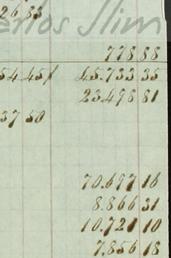 26 88
Carlos Slim
778 88
54.451 45.733 33
23.496 81
37 50
70.697 16
8.866 31
10.721 10
7.856 18